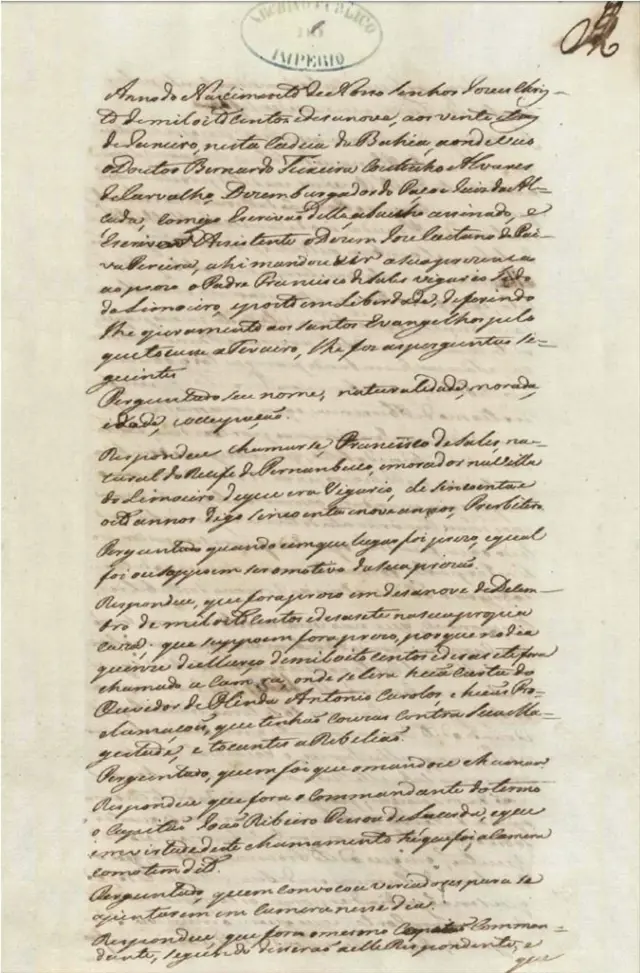 ARCHIVO PUBLICO
DO
IMPERIO
Anno do Nascimento de Nosso Senhor Jesus Chris-
to de mil oito centos e desanove, aos vinte e
de Janeiro, nesta Cadeia da Bahia, aonde veio
o Doutor Bernardo Teixeira Coutinho Alvares
de Carvalho, Dezembargador do Paço e Juis da Al-
çada, comigo Escrivão della abaixo assinado, e
Escrivão Assistente o Dezem. José Caetano de Pai-
va Pereira, ahi mandou vir a sua presença
ao prezo o Padre Francisco de Sales vigario
do Limoeiro, e posto em Liberdade, deferindo
lhe o juramento aos Santos Evangelhos pelo
que tocasse a Terceiro, lhe fez as perguntas se-
guintes
Perguntado seu nome, naturalidade, morada,
idade, e occupação.
Respondeu chamarse, Francisco de Sales, na-
tural do Recife de Pernambuco, e morador na Villa
do Limoeiro de que era Vigario, de sincoenta e
oito annos digo sincoenta e nove annos, Presbitero
Perguntado quando e em que lugar foi prezo, e qual
foi ou suppoem ser o motivo da sua prizão.
Respondeu, que fora prezo em desanove de Dezem-
bro de mil oito centos e desasete na sua propia
caza, que suppoem fora prezo, porque no dia
quinze de Março de mil oito centos e desasete fora
chamado a Camara, onde se lera huã Carta do
Ouvidor de Olinda Antonio Carolos e huãs Pro-
clamaçoes, que tenhão couzas contra Sua Ma-
gestade, e tocantes a Rebelião.
Perguntado, quem foi que o mandou chamar
Respondeu que fora o Commandante do termo
o Capitão João Ribeiro Pessoa de Lacerda, e que
em virtude deste chamamento hé que foi, a Camera
como tem dito.
Perguntado, quem convocou os vereadores para se
ajuntarem em Camera nesse dia.
Respondeu, que fora o mesmo Capitão Comman-
dante, segundo disserão a elle Respondente, e
que